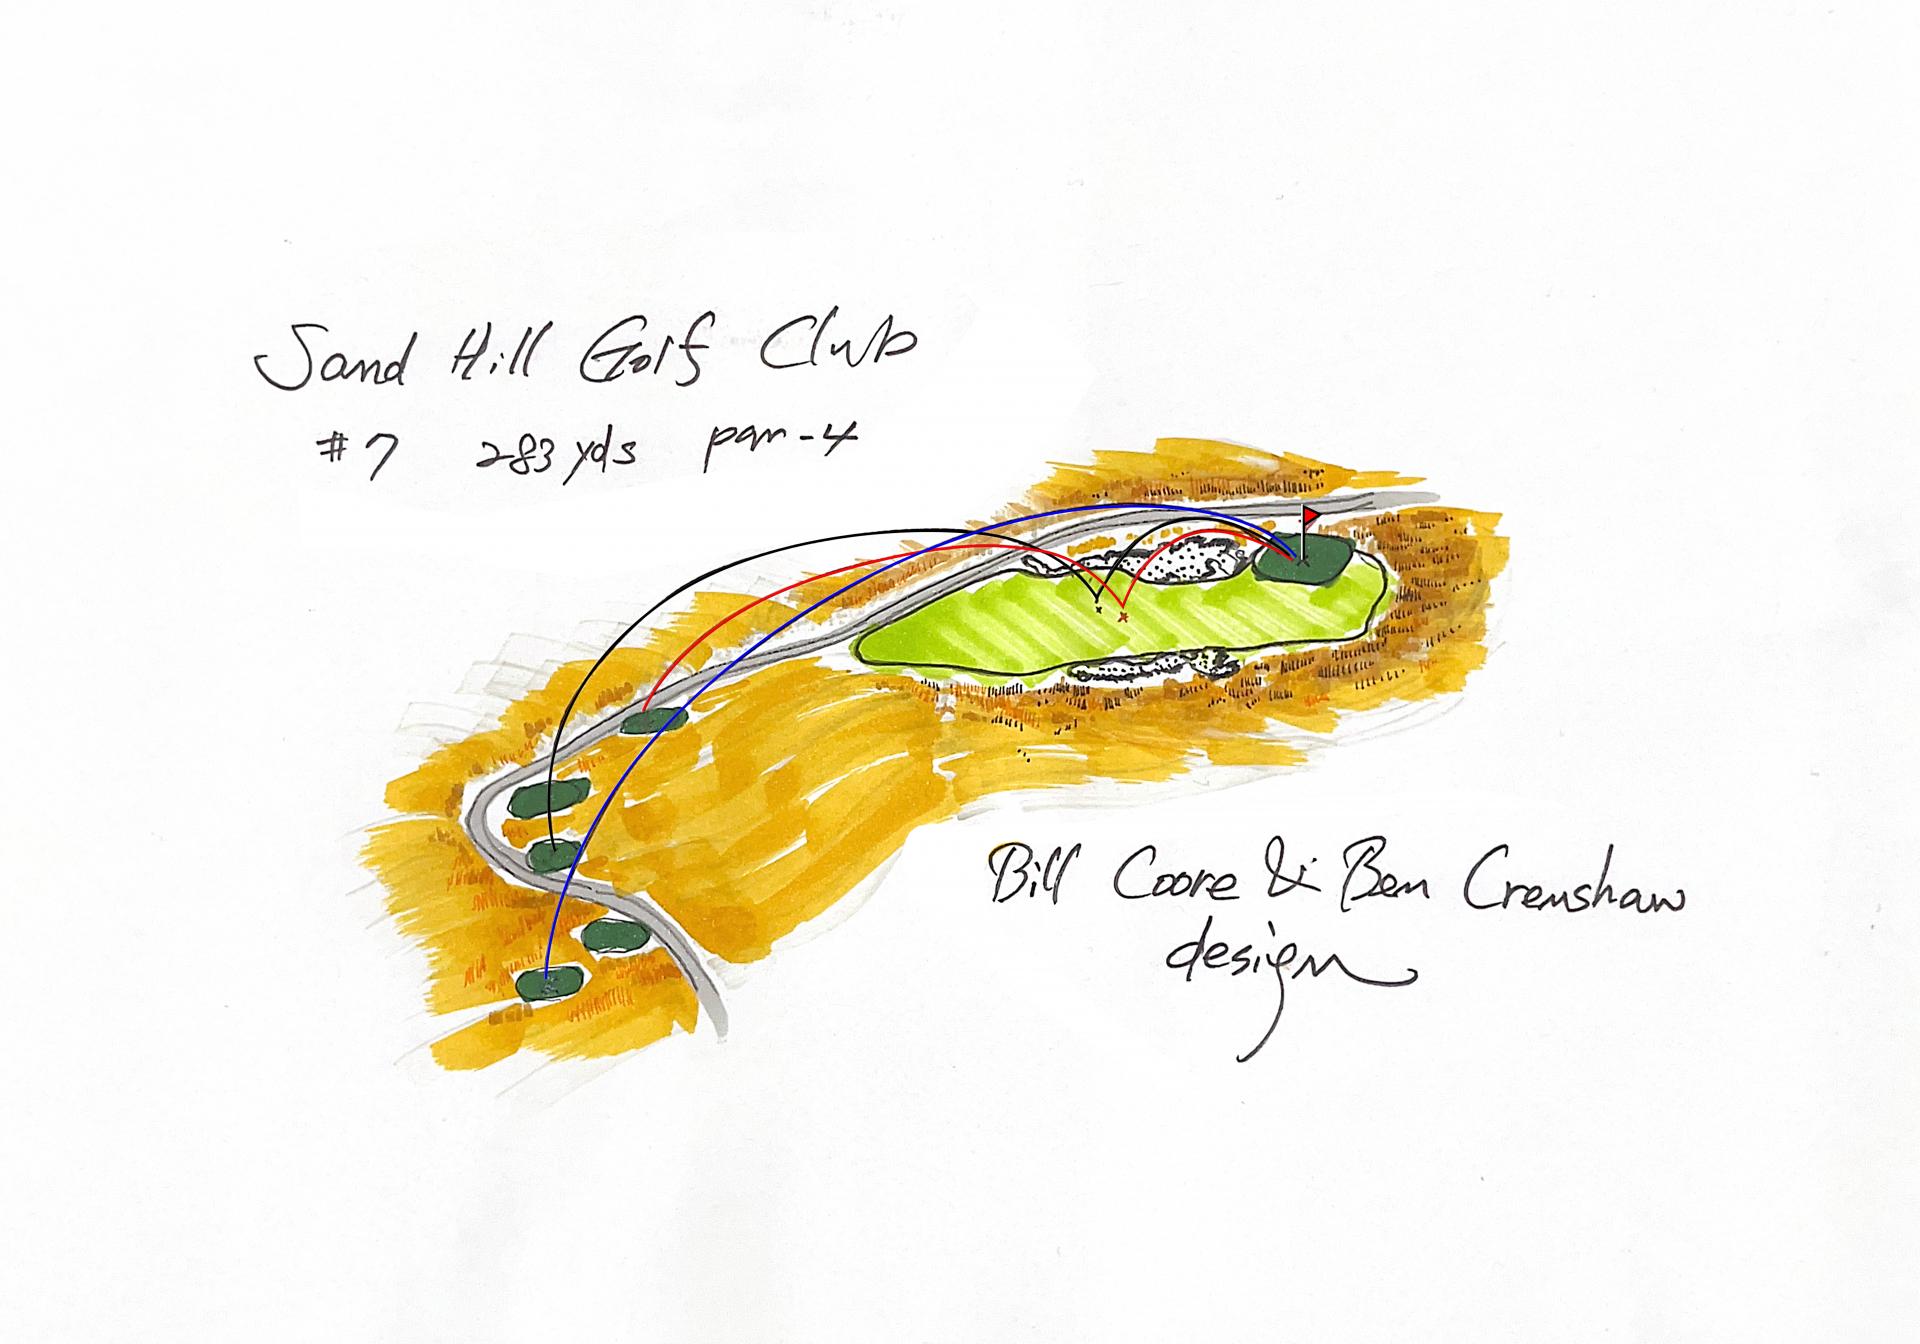 Sand Hill Golf Club
#7 283 yds par-4
Bill Coore & Ben Crenshaw
design